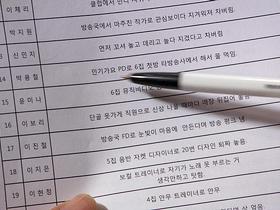 이 혜 리 클럽에서 만나
박 지 원 방송국에서 마주친 작가로 관심보이다 지겨워져 차버림.
신 민 지 먼저 꼬셔 놓고 데리고 놀다 지겹다고 차버림
14 박 용 철 인기가요 PD로 6집 첫방 타방송사에서 해서 물 먹임.
15 윤 미 나 6집 뮤직비디오
16 이 보 리 단골 옷가게 직원으로 신상 나올 때마다 매장 뒤집어 놓음
17 이 진 철 방송국 FD로 눈빛이 마음에 안든다며 방송 펑크 냄
18 이 지 은 5집 음반 자켓 디자이너로 20번 디자인 퇴짜 놓음.
19 이 현 정 보컬 트레이너로 자기가 노래 못 부르는 거
생각안하고 탓함.
4집 안무 트레이너로 안무